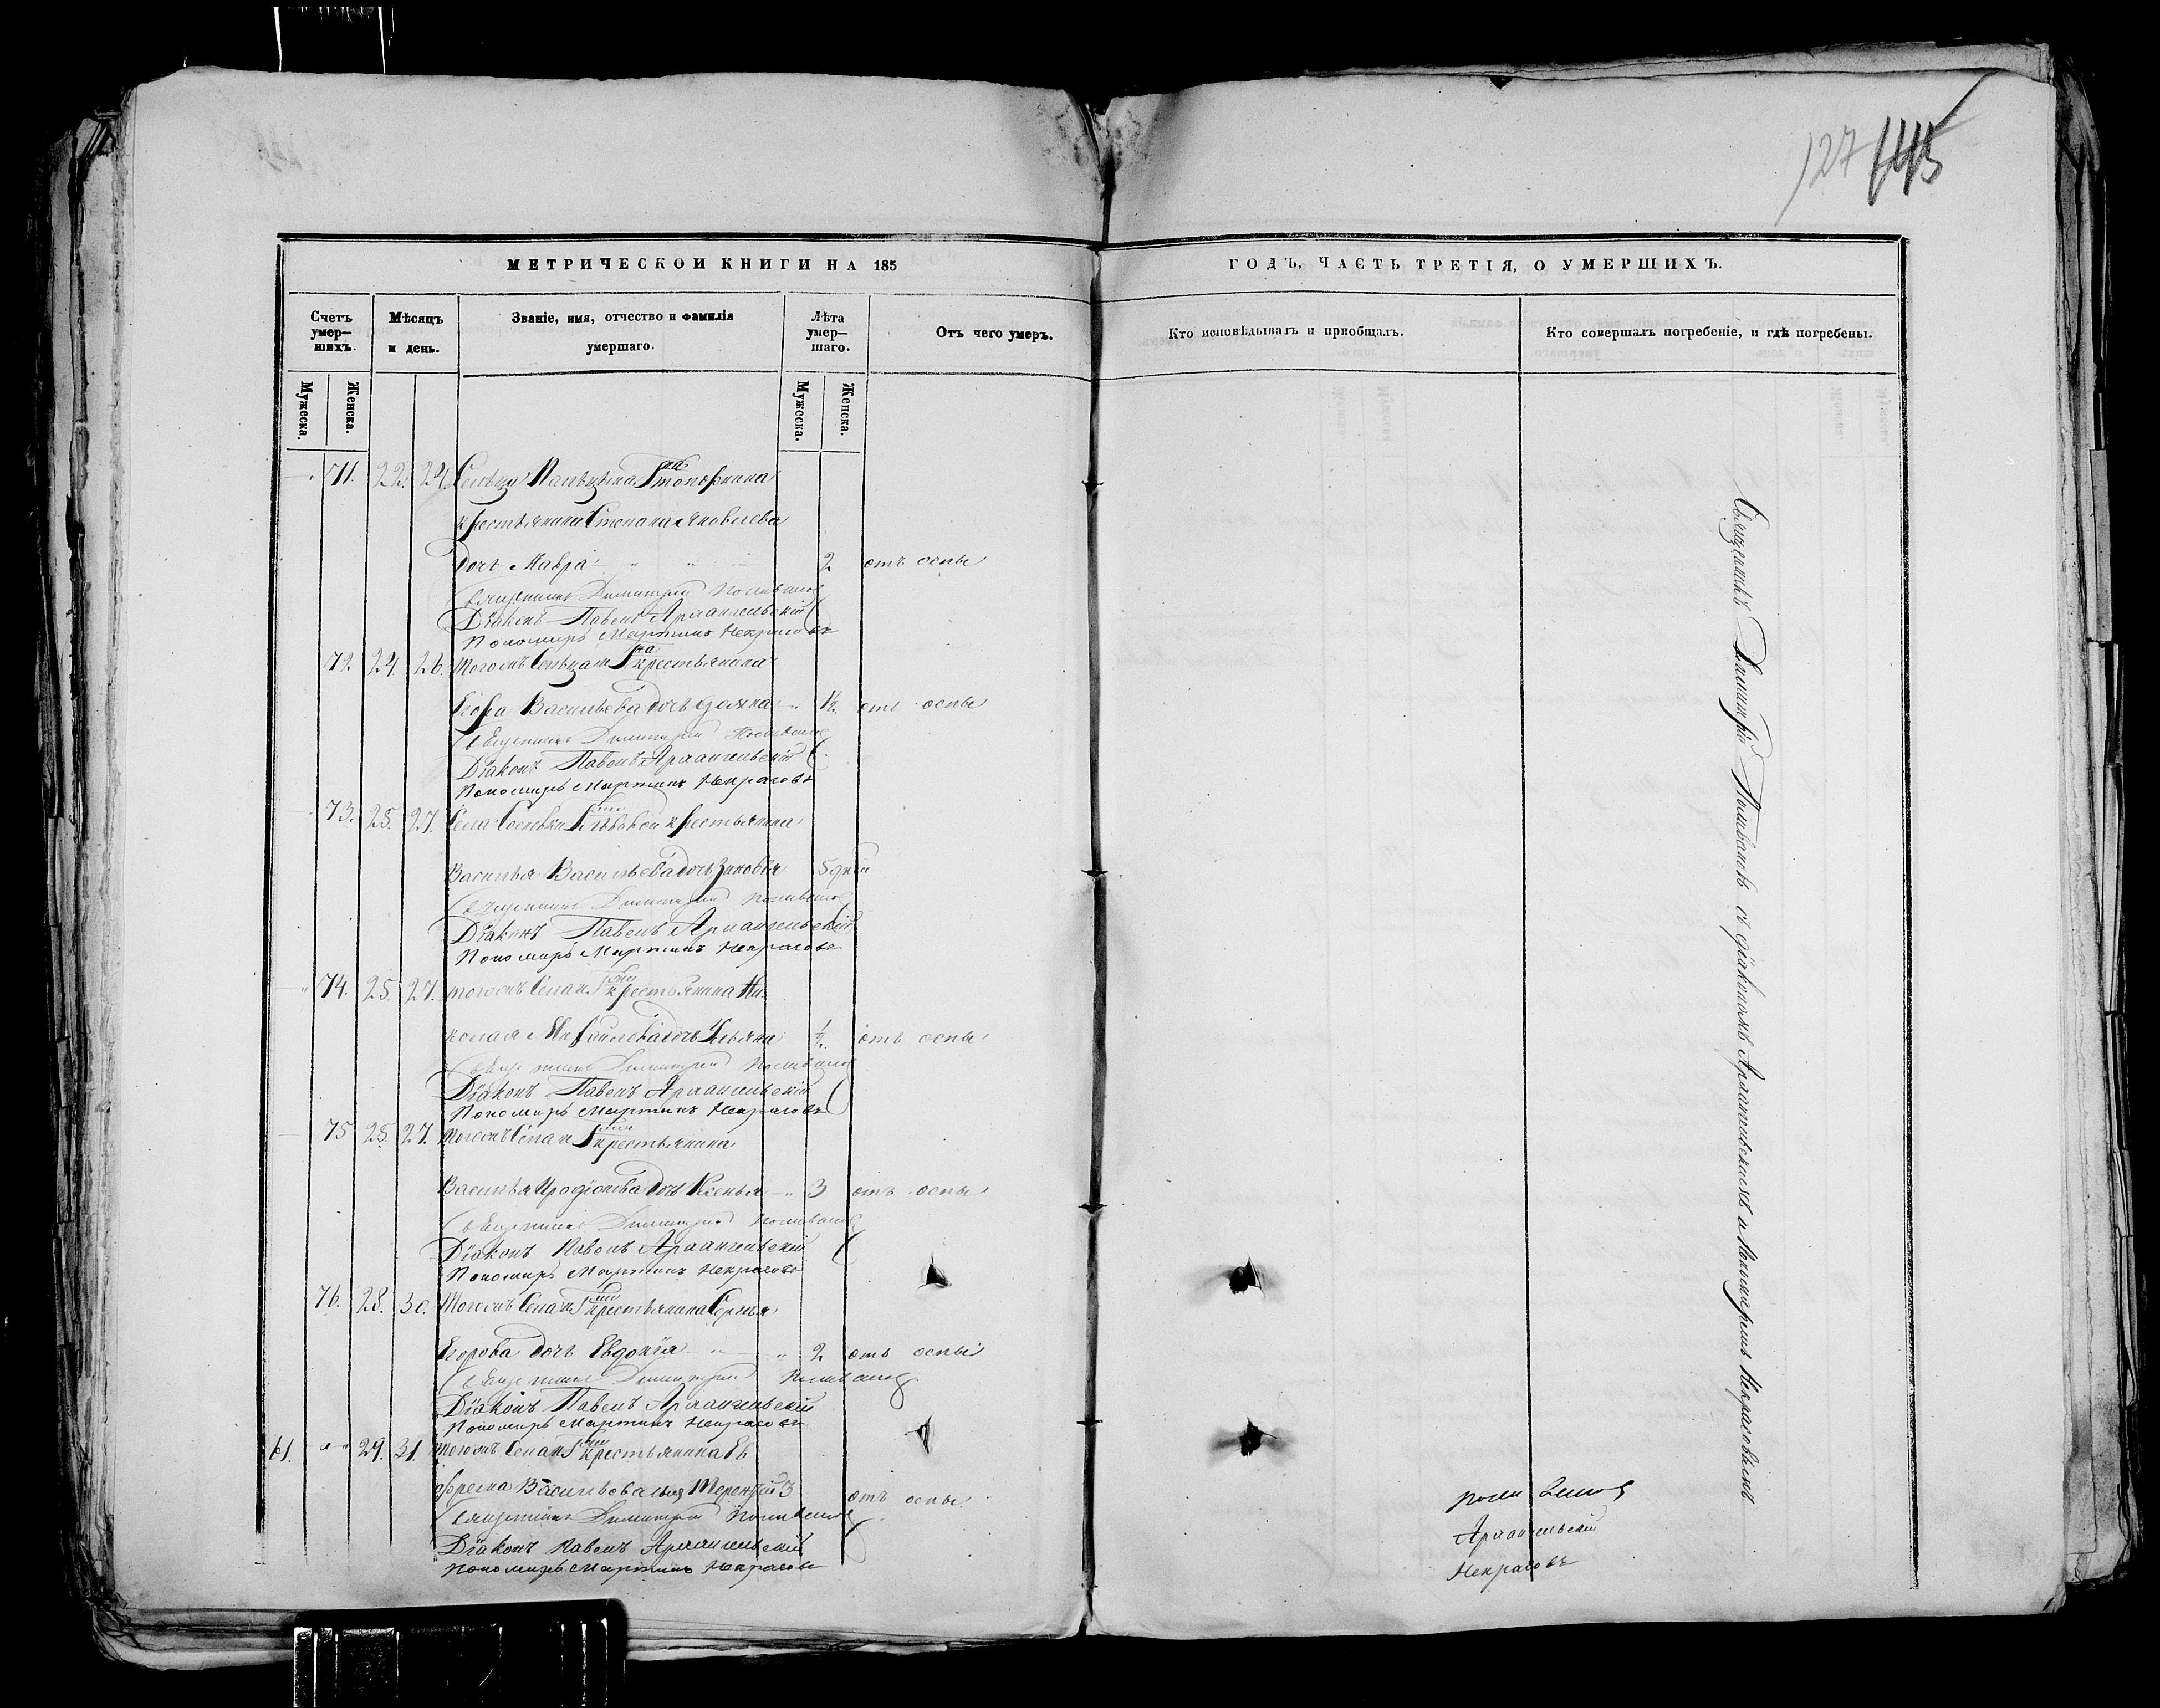 127 145
МЕТРИЧЕСКОЙ КНИГИ НА 185
ГОДЪ, ЧАСТЬ ТРЕТІЯ, О УМЕРШИХЪ.
Счетъ умер-шихъ.
Мѣсяцъ и день.
Званіе, имя, отчество и фамилія умершаго.
Лѣта умер-шаго.
Отъ чего умеръ.
Кто исповѣдывалъ и пріобщалъ.
Кто совершалъ погребеніе, и гдѣ погребены.
Мужеска. Женска.
Мужеска. Женска.
71. 22. 24.
крестьянина Степана Яковлева
дочь Мавра 2 отъ оспы
Священникъ Димитрій Поливановъ
Діаконъ Павелъ Архангельскій
Пономарь Мартинъ Некрасовъ
72. 24. 26. Тогожъ Сельца Г на крестьянина
Егора Васильева дочь 1½. отъ оспы
Священникъ Димитрій Поливановъ
Діаконъ Павелъ Архангельскій
Пономарь Мартинъ Некрасовъ
73. 25. 27. Села Сосновки Г Львовой крестьянина
Василья Васильева дочь Зиновія 5 дней
Священникъ Димитрій Поливановъ
Діаконъ Павелъ Архангельскій
Пономарь Мартинъ Некрасовъ
74. 25. 27. тогожъ Села и Г жи крестьянина Ни-
колая Михайлова дочь Ульяна ½. отъ оспы
Священникъ Димитрій Поливановъ
Діаконъ Павелъ Архангельскій
Пономарь Мартинъ Некрасовъ
75 25. 27. Тогожъ Села и Г жи крестьянина
Василья Иродіонова дочь Ксенья 3 отъ оспы
Священникъ Димитрій Поливановъ
Діаконъ Павелъ Архангельскій
Пономарь Мартинъ Некрасовъ
76. 28. 30. Тогожъ Села и Г жи крестьянина Сергѣя
Егорова дочь Евдокія 2 отъ оспы
Священникъ Димитрій Поливановъ
Діаконъ Павелъ Архангельскій
Пономарь Мартинъ Некрасовъ
61. 29. 31. тогожъ Села и Г жи крестьянина Еф
фрема Васильева сынъ Терентій 3 отъ оспы
Священникъ Димитрій Поливановъ
Діаконъ Павелъ Архангельскій
Пономарь Мартинъ Некрасовъ
Священникъ Димитрій Поливановъ съ діакономъ Архангельскимъ и Пономаремъ Некрасовымъ
Поливановъ
Архангельскій
Некрасовъ